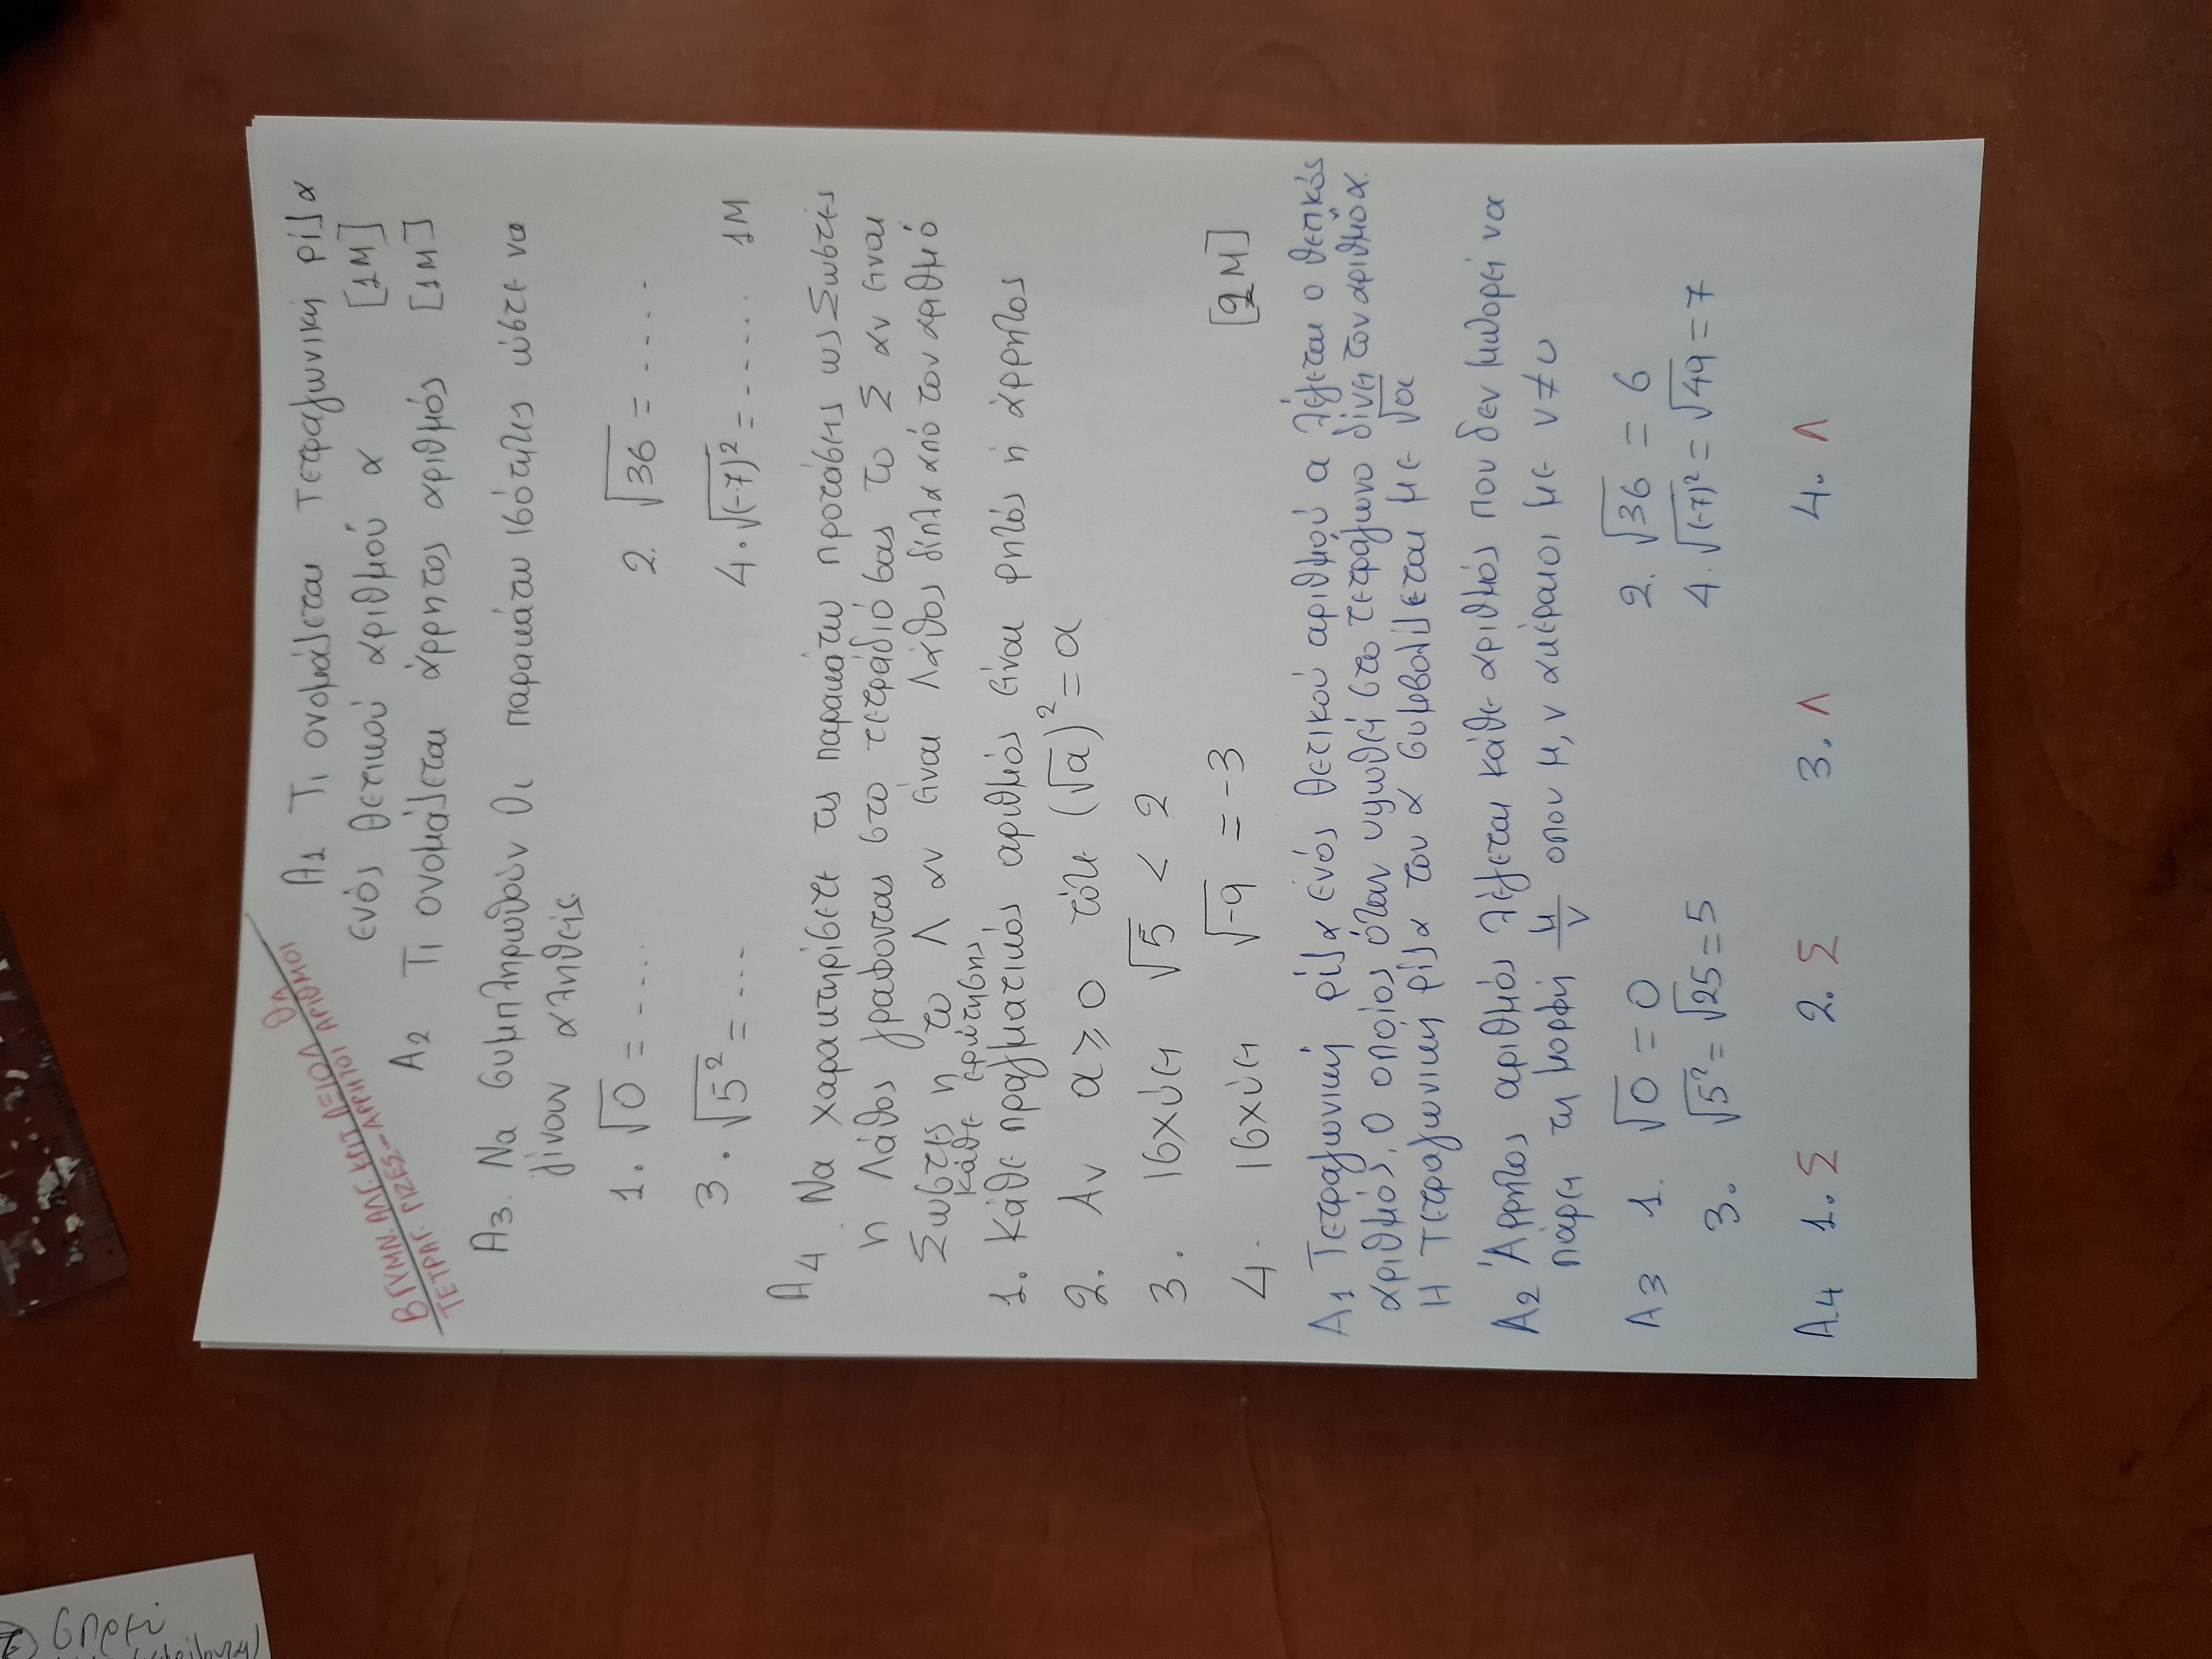 Β ΓΥΜΝ. ΑΛΓ. ΚΡΙΤ. ΑΞΙΟΛ
ΤΕΤΡΑΓ. ΡΙΖΕΣ-ΑΡΡΗΤΟΙ ΑΡΙΘΜΟΙ
Α1. Τι ονομάζεται τετραγωνική ρίζα
ενός θετικού αριθμού α [1Μ]
Α2 Τι ονομάζεται άρρητος αριθμός [1Μ]
Α3. Να συμπληρωθούν οι παρακάτω ισότητες ώστε να
γίνουν αληθείς
1. √0 = .... 2. √36 = ....
3. √5² = .... 4. √(-7)² = ..... 1Μ
Α4. Να χαρακτηρίσετε τις παρακάτω προτάσεις ως Σωστές
ή Λάθος γράφοντας στο τετράδιό σας το Σ αν είναι
Σωστές ή το Λ αν είναι Λάθος δίπλα από τον αριθμό
κάθε ερώτησης
1. Κάθε πραγματικός αριθμός είναι ρητός ή άρρητος
2. Αν α ≥ 0 τότε (√α)² = α
3. Ισχύει √5 < 2
4. Ισχύει √-9 = -3 [2Μ]
Α1 Τετραγωνική ρίζα ενός θετικού αριθμού α λέγεται ο θετικός
αριθμός, ο οποίος όταν υψωθεί στο τετράγωνο δίνει τον αριθμό α.
Η τετραγωνική ρίζα του α συμβολίζεται με √α
Α2 Άρρητος αριθμός λέγεται κάθε αριθμός που δεν μπορεί να
πάρει τη μορφή μ/ν όπου μ, ν ακέραιοι με ν≠0
Α3 1. √0 = 0 2. √36 = 6
3. √5² = √25 = 5 4. √(-7)² = √49 = 7
Α4 1. Σ 2. Σ 3. Λ 4. Λ
σπρέι